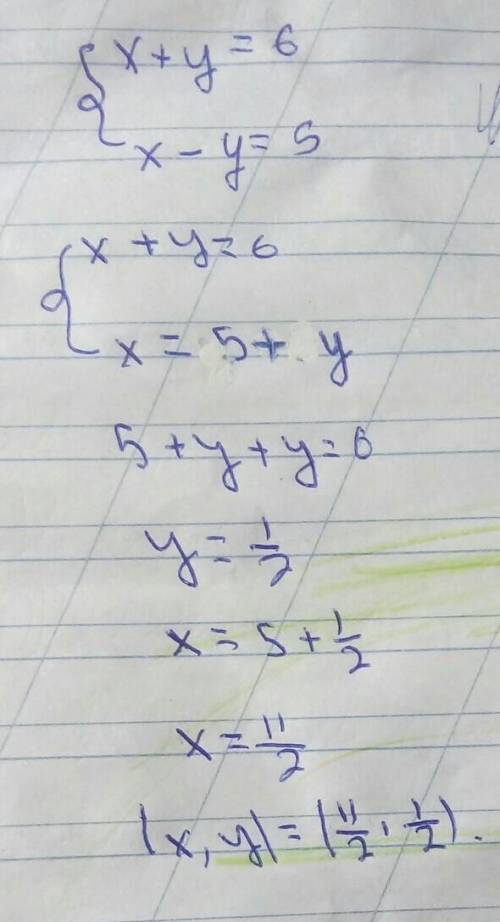 { x + y = 6
x - y = 5
{ x + y = 6
x = 5 + y
5 + y + y = 6
y = 1/2
x = 5 + 1/2
x = 11/2
(x, y) = (11/2, 1/2).